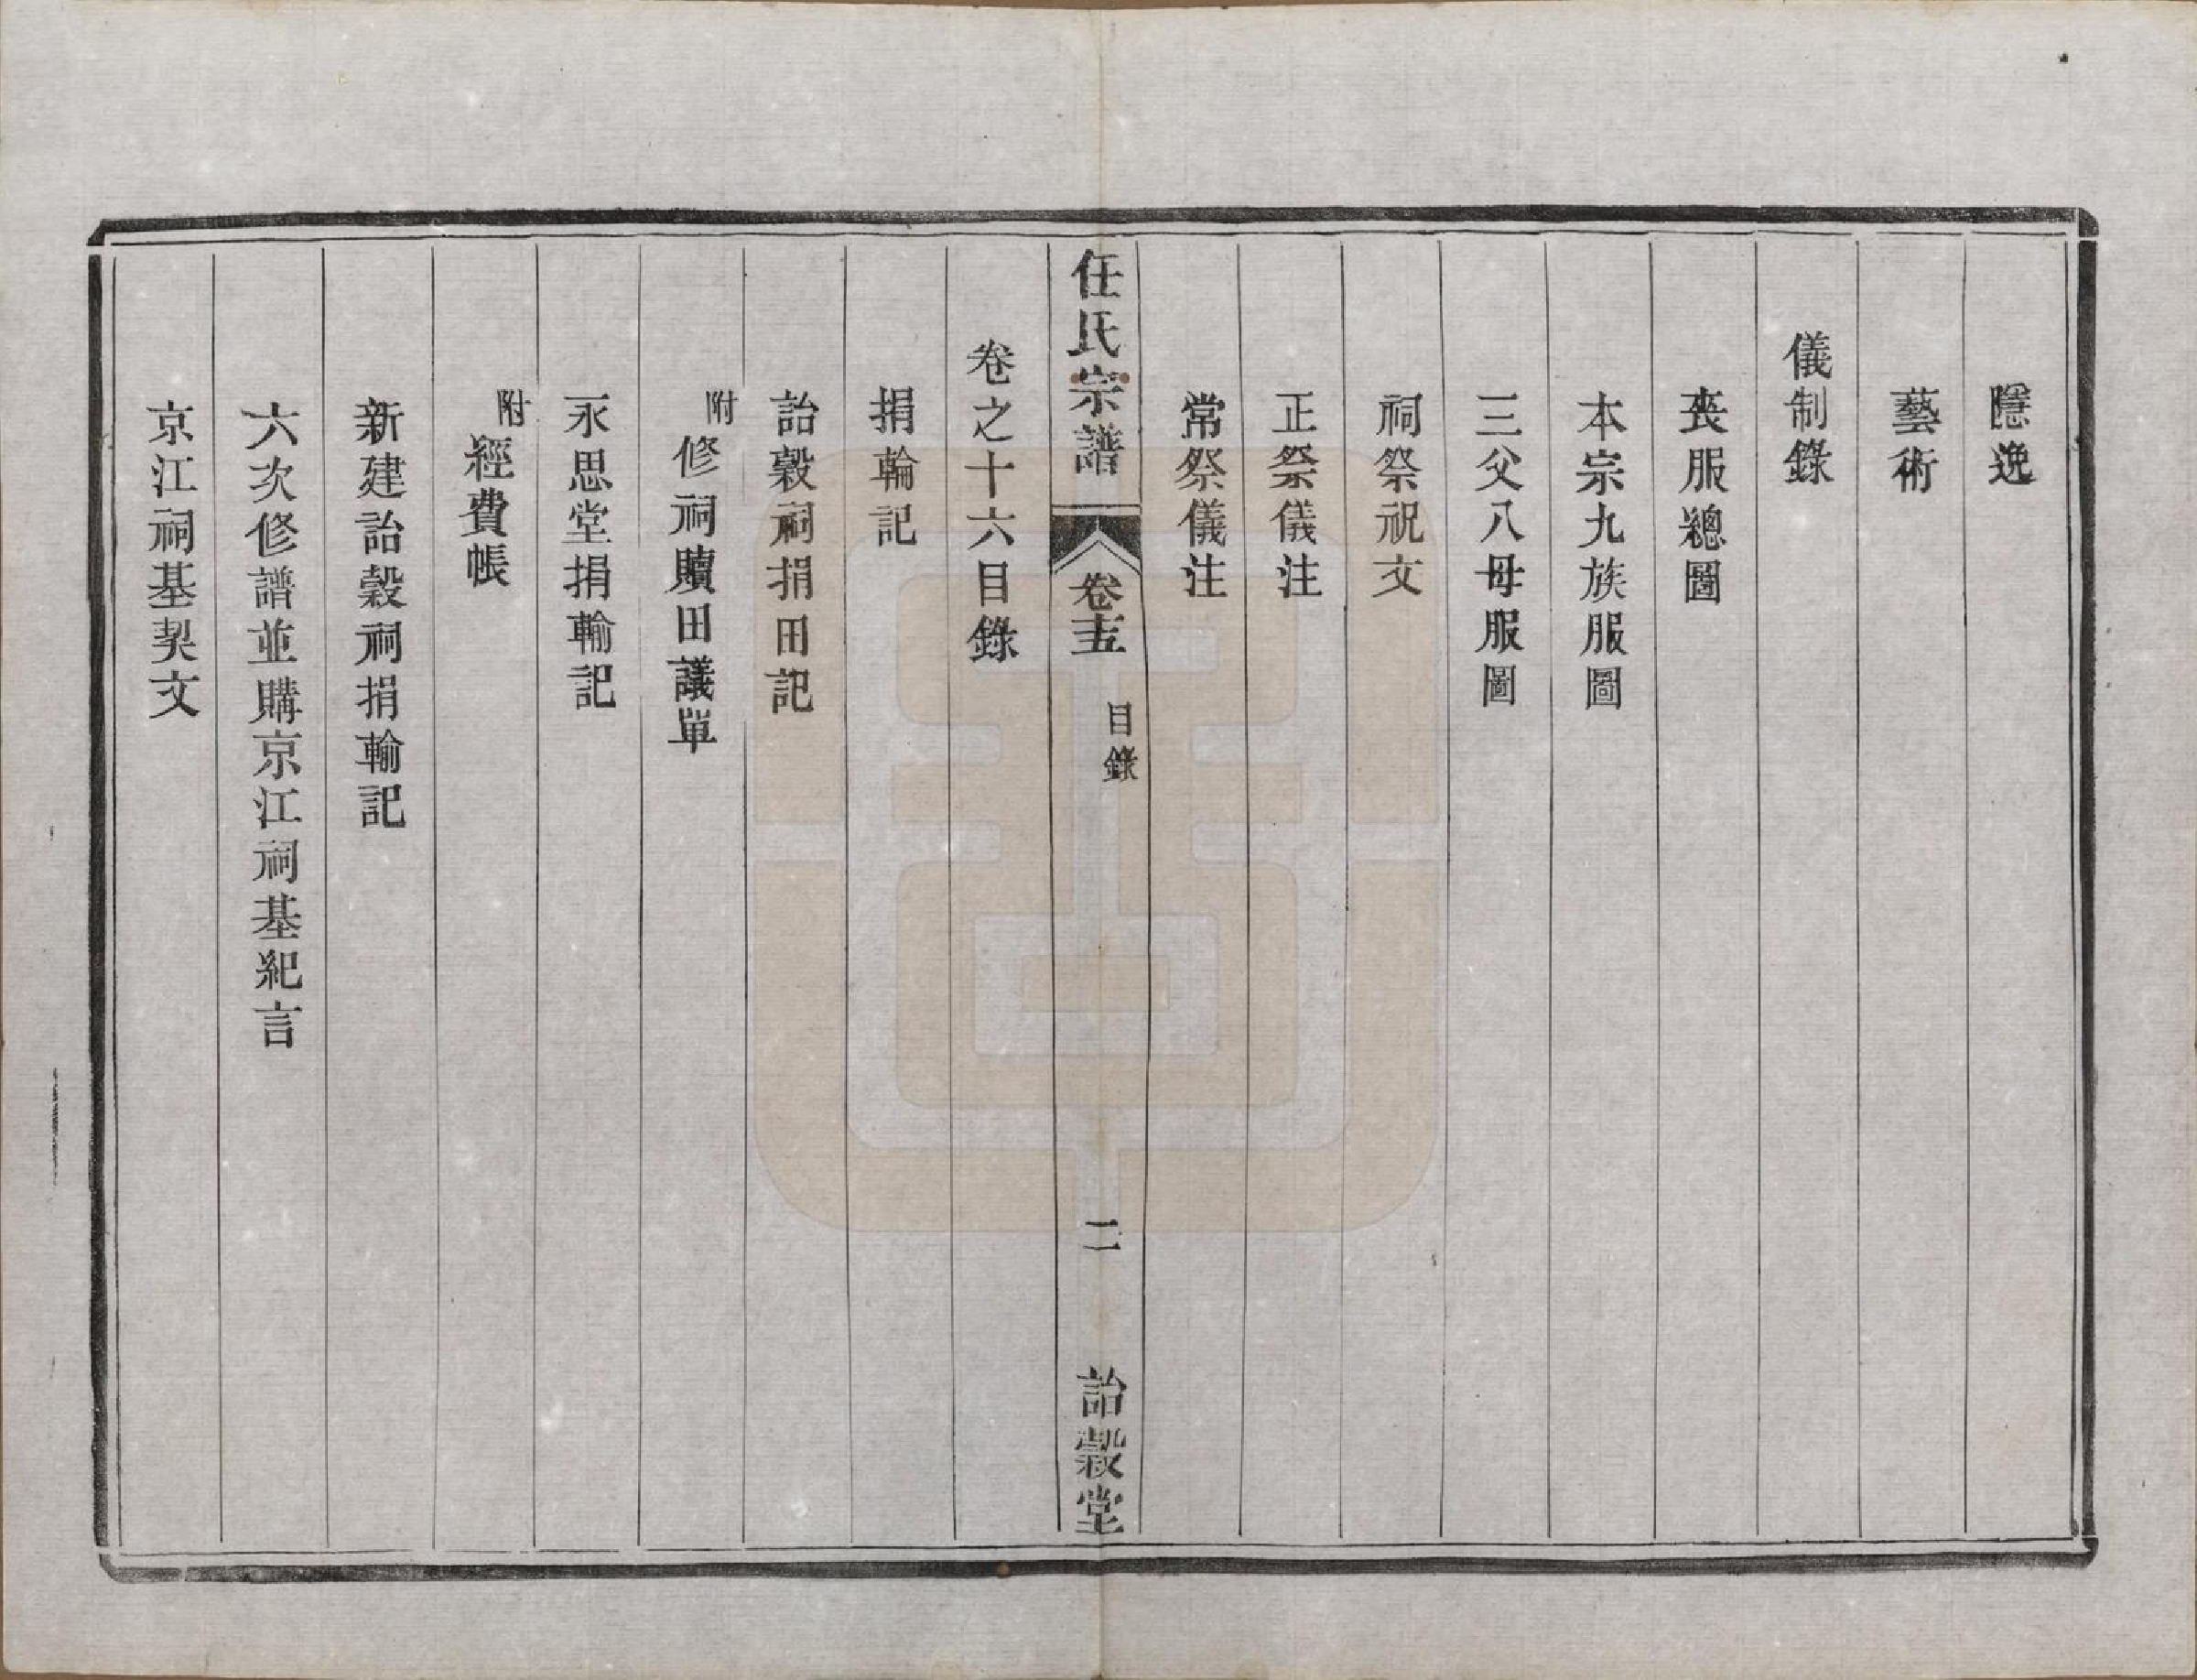 隱逸
藝術
儀制錄
喪服總圖
本宗九族服圖
三父八母服圖
祠祭祝文
正祭儀注
常祭儀注
任氏宗譜 卷十五 目錄 二 詒穀堂
卷之十六目錄
捐輪記
詒穀祠捐田記
附修祠贖田議單
永思堂捐輸記
附經費帳
新建詒穀祠捐輸記
六次修譜並購京江祠基紀言
京江祠基契文